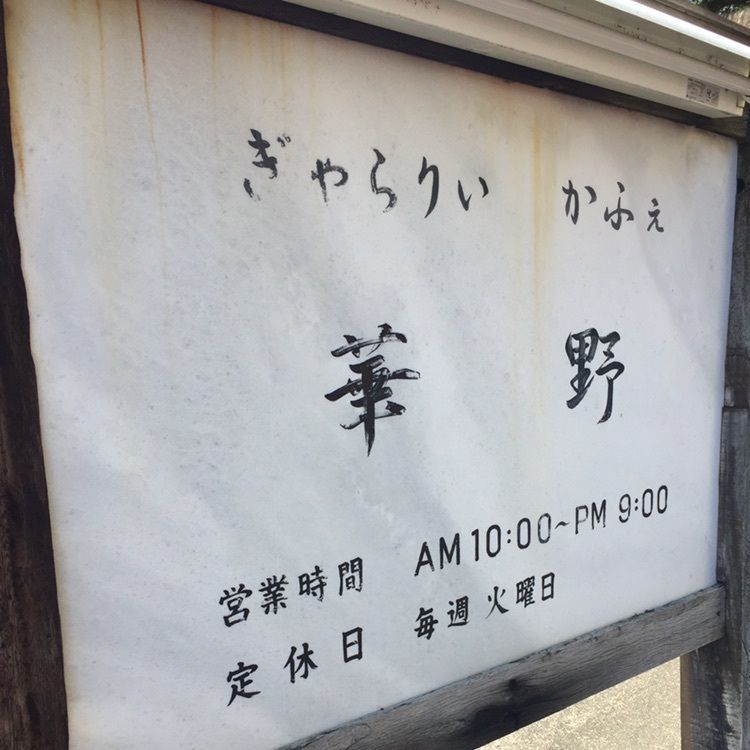 ぎゃらりい かふぇ
華野
営業時間 AM10:00~PM9:00
定休日 毎週火曜日